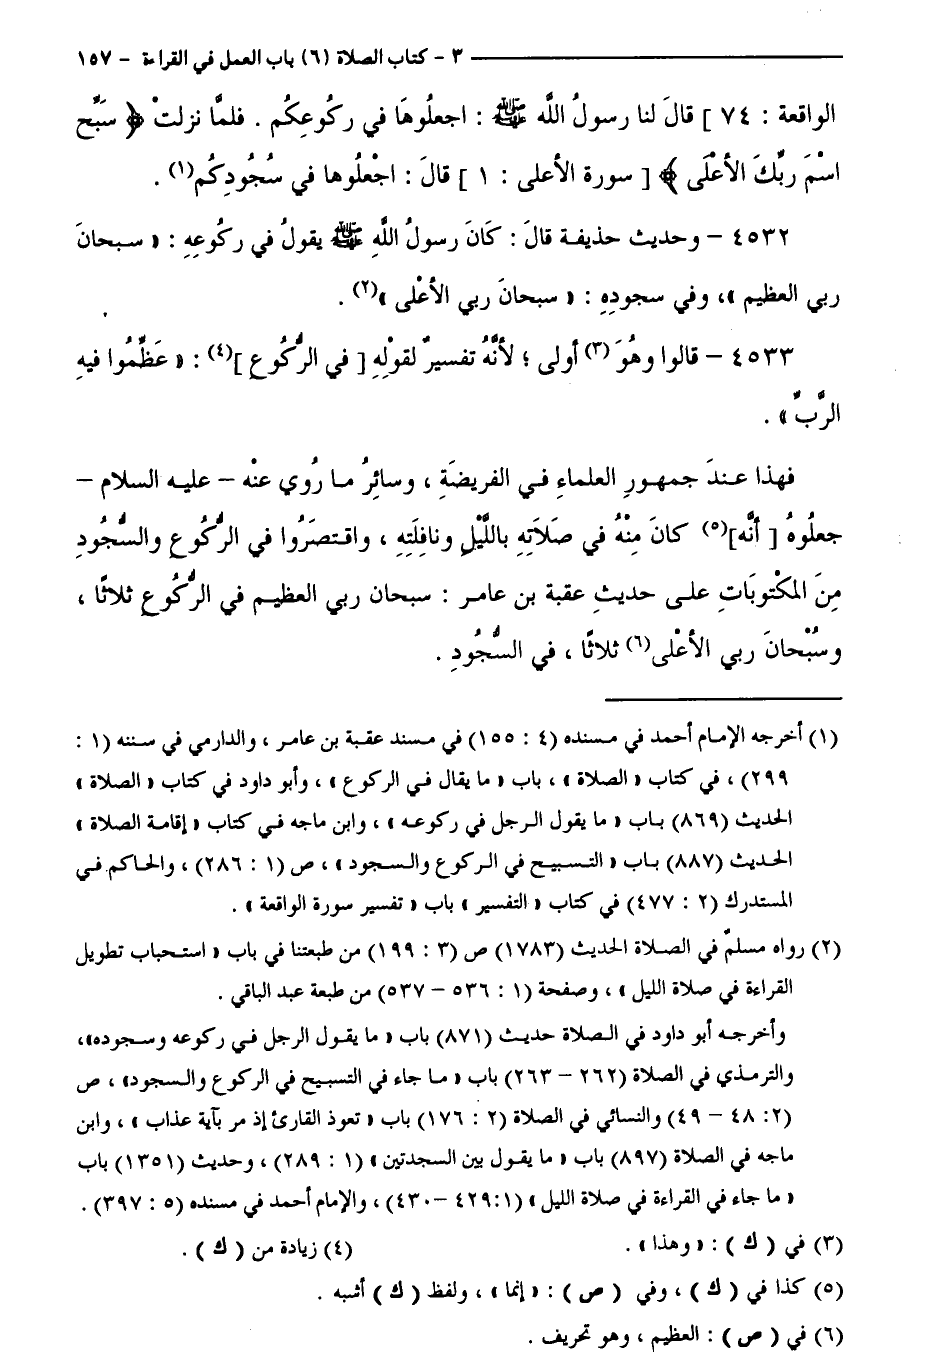 ٣ - كتاب الصلاة (٦) باب العمل في القراءة - ١٥٧
الواقعة : ٧٤ ] قالَ لنا رسولُ اللَّه ﷺ : اجعلُوهَا في ركُوعِكُم . فلمَّا نزلتْ ﴿ سَبِّحِ
اسْمَ ربِّكَ الأعْلَى ﴾ [ سورة الأعلى : ١ ] قالَ : اجْعلُوها في سُجُودِكُم(١) .
٤٥٣٢ - وحديث حذيفة قالَ : كَانَ رسولُ اللَّهِ ﷺ يقولُ في ركُوعِهِ : « سبحانَ
ربي العظيم »، وفي سجودِهِ : « سبحانَ ربي الأعْلى »(٢) .
٤٥٣٣ - قالوا وهُوَ (٣) أولى ؛ لأنَّهُ تفسيرٌ لقوْلِهِ [ في الرُّكُوعِ ](٤) : « عَظِّمُوا فيهِ
الرَّبَّ » .
فهذا عندَ جمهورِ العلماءِ في الفريضَةِ ، وسائِرُ ما رُوي عنْه - عليه السلام -
جعلُوهُ [ أنَّه ](٥) كانَ مِنْهُ في صَلاَتِهِ باللَّيْلِ ونافِلَتِهِ ، واقتصَرُوا في الرُّكُوعِ والسُّجُودِ
مِنَ المكْتوبَاتِ على حديثِ عقبة بن عامر : سبحان ربي العظيم في الرُّكُوعِ ثلاثًا ،
وسُبْحانَ ربي الأعْلى(٦) ثلاثًا ، في السُّجُودِ .
(١) أخرجه الإمام أحمد في مسنده (٤ : ١٥٥) في مسند عقبة بن عامر ، والدارمي في سننه (١ :
٢٩٩) ، في كتاب « الصلاة » ، باب « ما يقال في الركوع » ، وأبو داود في كتاب « الصلاة »
الحديث (٨٦٩) باب « ما يقول الرجل في ركوعه » ، وابن ماجه في كتاب « إقامة الصلاة »
الحديث (٨٨٧) باب « التسبيح في الركوع والسجود » ، ص (١ : ٢٨٦) ، والحاكم في
المستدرك (٢ : ٤٧٧) في كتاب « التفسير » باب « تفسير سورة الواقعة » .
(٢) رواه مسلمٌ في الصلاة الحديث (١٧٨٣) ص (٣ : ١٩٩) من طبعتنا في باب « استحباب تطويل
القراءة في صلاة الليل » ، وصفحة (١ : ٥٣٦ - ٥٣٧) من طبعة عبد الباقي .
وأخرجه أبو داود في الصلاة حديث (٨٧١) باب « ما يقول الرجل في ركوعه وسجوده»،
والترمذي في الصلاة (٢٦٢ - ٢٦٣) باب « ما جاء في التسبيح في الركوع والسجود» ، ص
(٢: ٤٨ - ٤٩) والنسائي في الصلاة (٢ : ١٧٦) باب « تعوذ القارئ إذ مر بآية عذاب » ، وابن
ماجه في الصلاة (٨٩٧) باب « ما يقول بين السجدتين » (١ : ٢٨٩) ، وحديث (١٣٥١) باب
« ما جاء في القراءة في صلاة الليل » (١:٤٢٩ -٤٣٠) ، والإمام أحمد في مسنده (٥ : ٣٩٧) .
(٣) في ( ك ) : « وهذا » . (٤) زيادة من ( ك ) .
(٥) كذا في ( ك ) ، وفي ( ص ) : « إنما » ، ولفظ ( ك ) أشبه .
(٦) في ( ص ) : العظيم ، وهو تحريف .